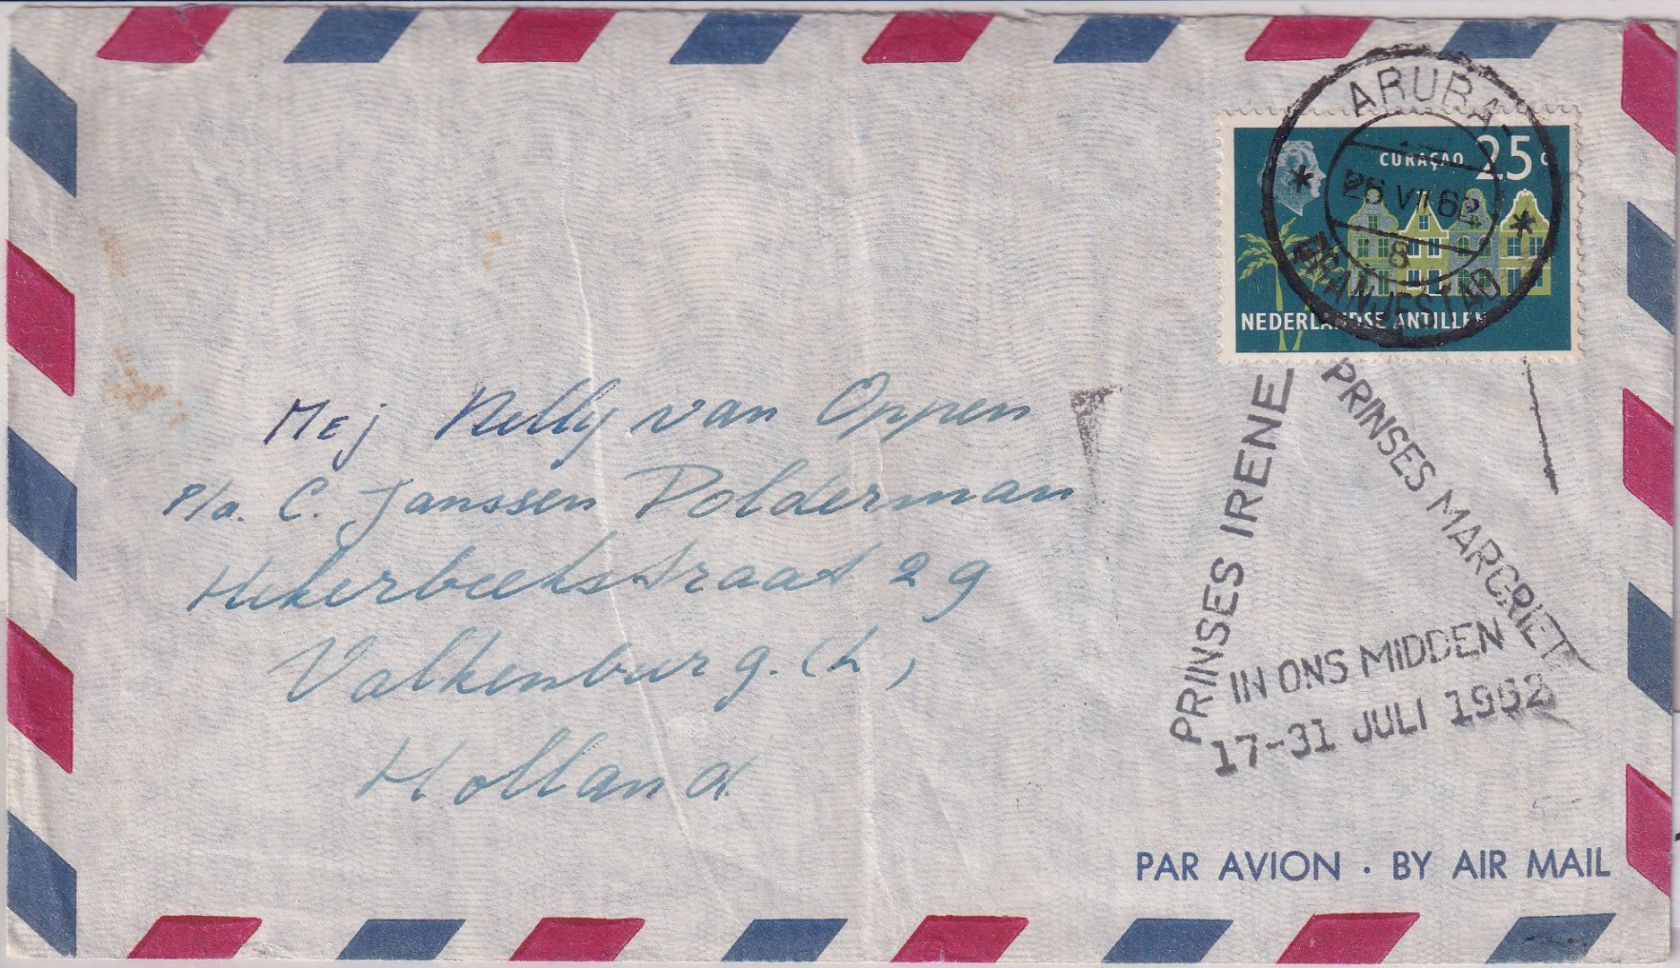 ARUBA
CURAÇAO 25 c
26 VII 62
8
ORANJESTAD
NEDERLANDSE ANTILLEN
PRINSES IRENE
PRINSES MARGRIET
IN ONS MIDDEN
17-31 JULI 1962
Mej Nelly van Oppen
P/a. C. Janssen Polderman
Hekerbeekstraat 29
Valkenburg. (L)
Holland
PAR AVION · BY AIR MAIL